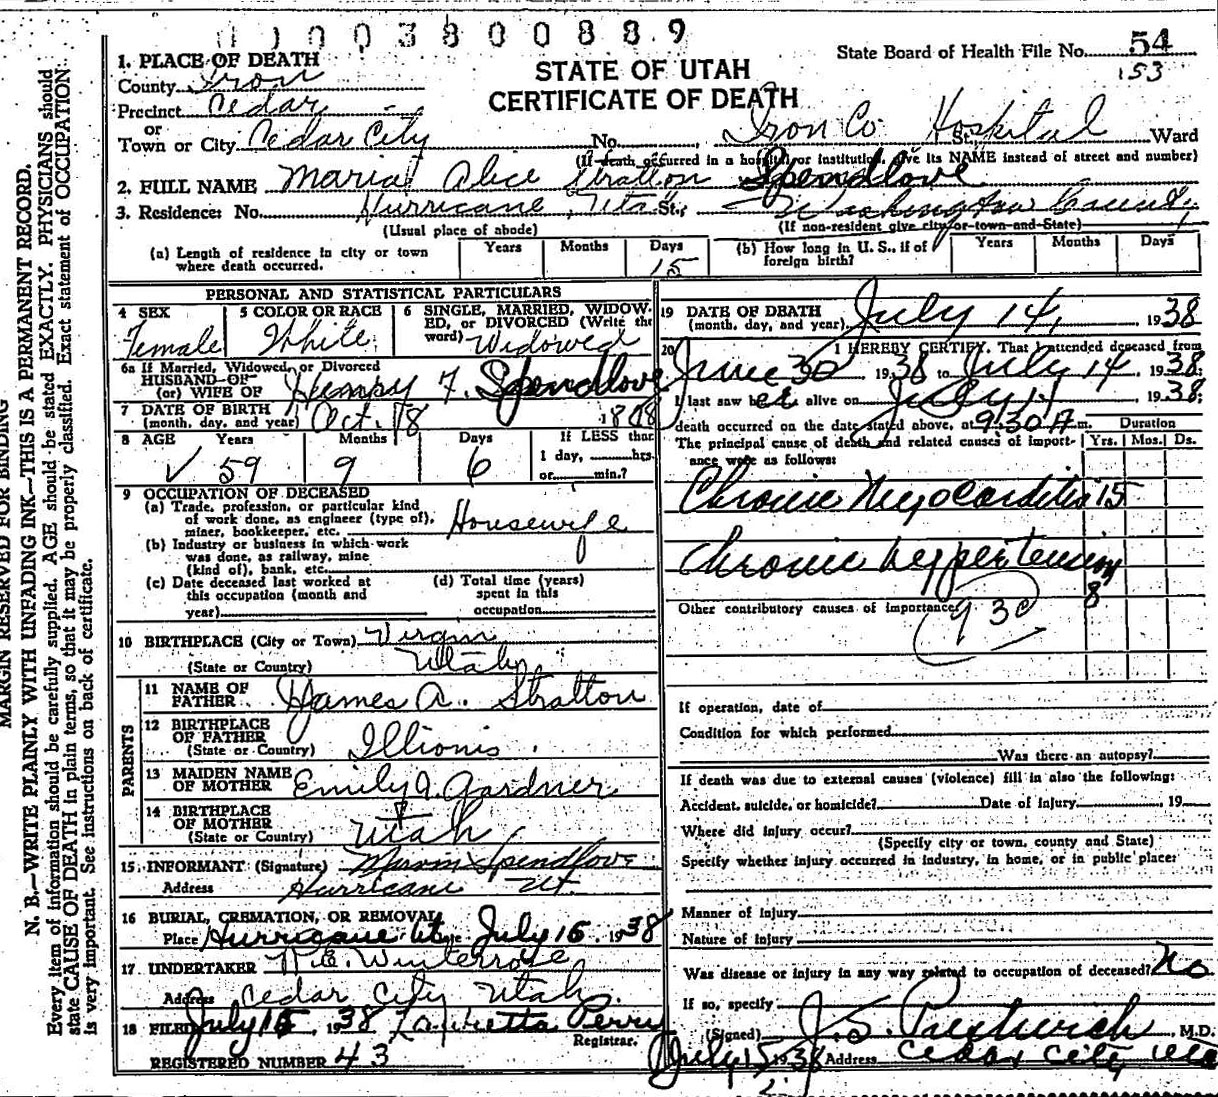 003800889
State Board of Health File No. 54
153
STATE OF UTAH
CERTIFICATE OF DEATH
1. PLACE OF DEATH
County Iron
Precinct Cedar
or
Town or City Cedar City No. Iron Co Hospital St., Ward
(If death occurred in a hospital or institution, give its NAME instead of street and number)
2. FULL NAME Maria Alice Stratton Spendlove
3. Residence: No. Hurricane, Utah St., Washington County,
(Usual place of abode) (If non-resident give city or town and State)
(a) Length of residence in city or town where death occurred. Years Months Days 15
(b) How long in U. S., if of foreign birth? Years Months Days
PERSONAL AND STATISTICAL PARTICULARS
4 SEX Female
5 COLOR OR RACE White
6 SINGLE, MARRIED, WIDOWED, or DIVORCED (Write the word) Widowed
6a If Married, Widowed, or Divorced
HUSBAND OF
(or) WIFE OF Henry F. Spendlove
7 DATE OF BIRTH
(month, day, and year) Oct. 18
8 AGE Years 59 Months 9 Days 6 If LESS than 1 day, hrs. or min.?
9 OCCUPATION OF DECEASED
(a) Trade, profession, or particular kind of work done, as engineer (type of), miner, bookkeeper, etc. Housewife
(b) Industry or business in which work was done, as railway, mine (kind of), bank, etc.
(c) Date deceased last worked at this occupation (month and year)
(d) Total time (years) spent in this occupation
10 BIRTHPLACE (City or Town) Virgin
(State or Country) Utah
PARENTS
11 NAME OF FATHER James A. Stratton
12 BIRTHPLACE OF FATHER
(State or Country) Illionis.
13 MAIDEN NAME OF MOTHER Emily A. Gardner
14 BIRTHPLACE OF MOTHER
(State or Country) Utah
15 INFORMANT (Signature) Spendlove
Address Hurricane Ut.
16 BURIAL, CREMATION, OR REMOVAL
Place Hurricane Ut. July 16, 1938
17 UNDERTAKER Winterrose
Address Cedar City Utah.
18 FILED July 15, 1938 Perry
Registrar.
REGISTERED NUMBER 43
19 DATE OF DEATH
(month, day, and year) July 14, 1938
20 I HEREBY CERTIFY, That I attended deceased from
June 30 1938 to July 14 1938;
I last saw her alive on July 14 1938;
death occurred on the date stated above, at 9:30 A m.
The principal cause of death and related causes of importance were as follows:
Duration
Yrs. Mos. Ds.
Chronic Myocarditis 15
Chronic hyppertension 8
Other contributory causes of importance:
93c
If operation, date of
Condition for which performed
Was there an autopsy?
If death was due to external causes (violence) fill in also the following:
Accident, suicide, or homicide? Date of injury , 19
Where did injury occur?
(Specify city or town, county and State)
Specify whether injury occurred in industry, in home, or in public place:
Manner of injury
Nature of injury
Was disease or injury in any way related to occupation of deceased? No
If so, specify
(Signed) J. S. Prestwich, M.D.
July 15 1938 Address Cedar City
MARGIN RESERVED FOR BINDING
N. B.—WRITE PLAINLY WITH UNFADING INK—THIS IS A PERMANENT RECORD.
Every item of information should be carefully supplied. AGE should be stated EXACTLY. PHYSICIANS should
state CAUSE OF DEATH in plain terms, so that it may be properly classified. Exact statement of OCCUPATION
is very important. See instructions on back of certificate.